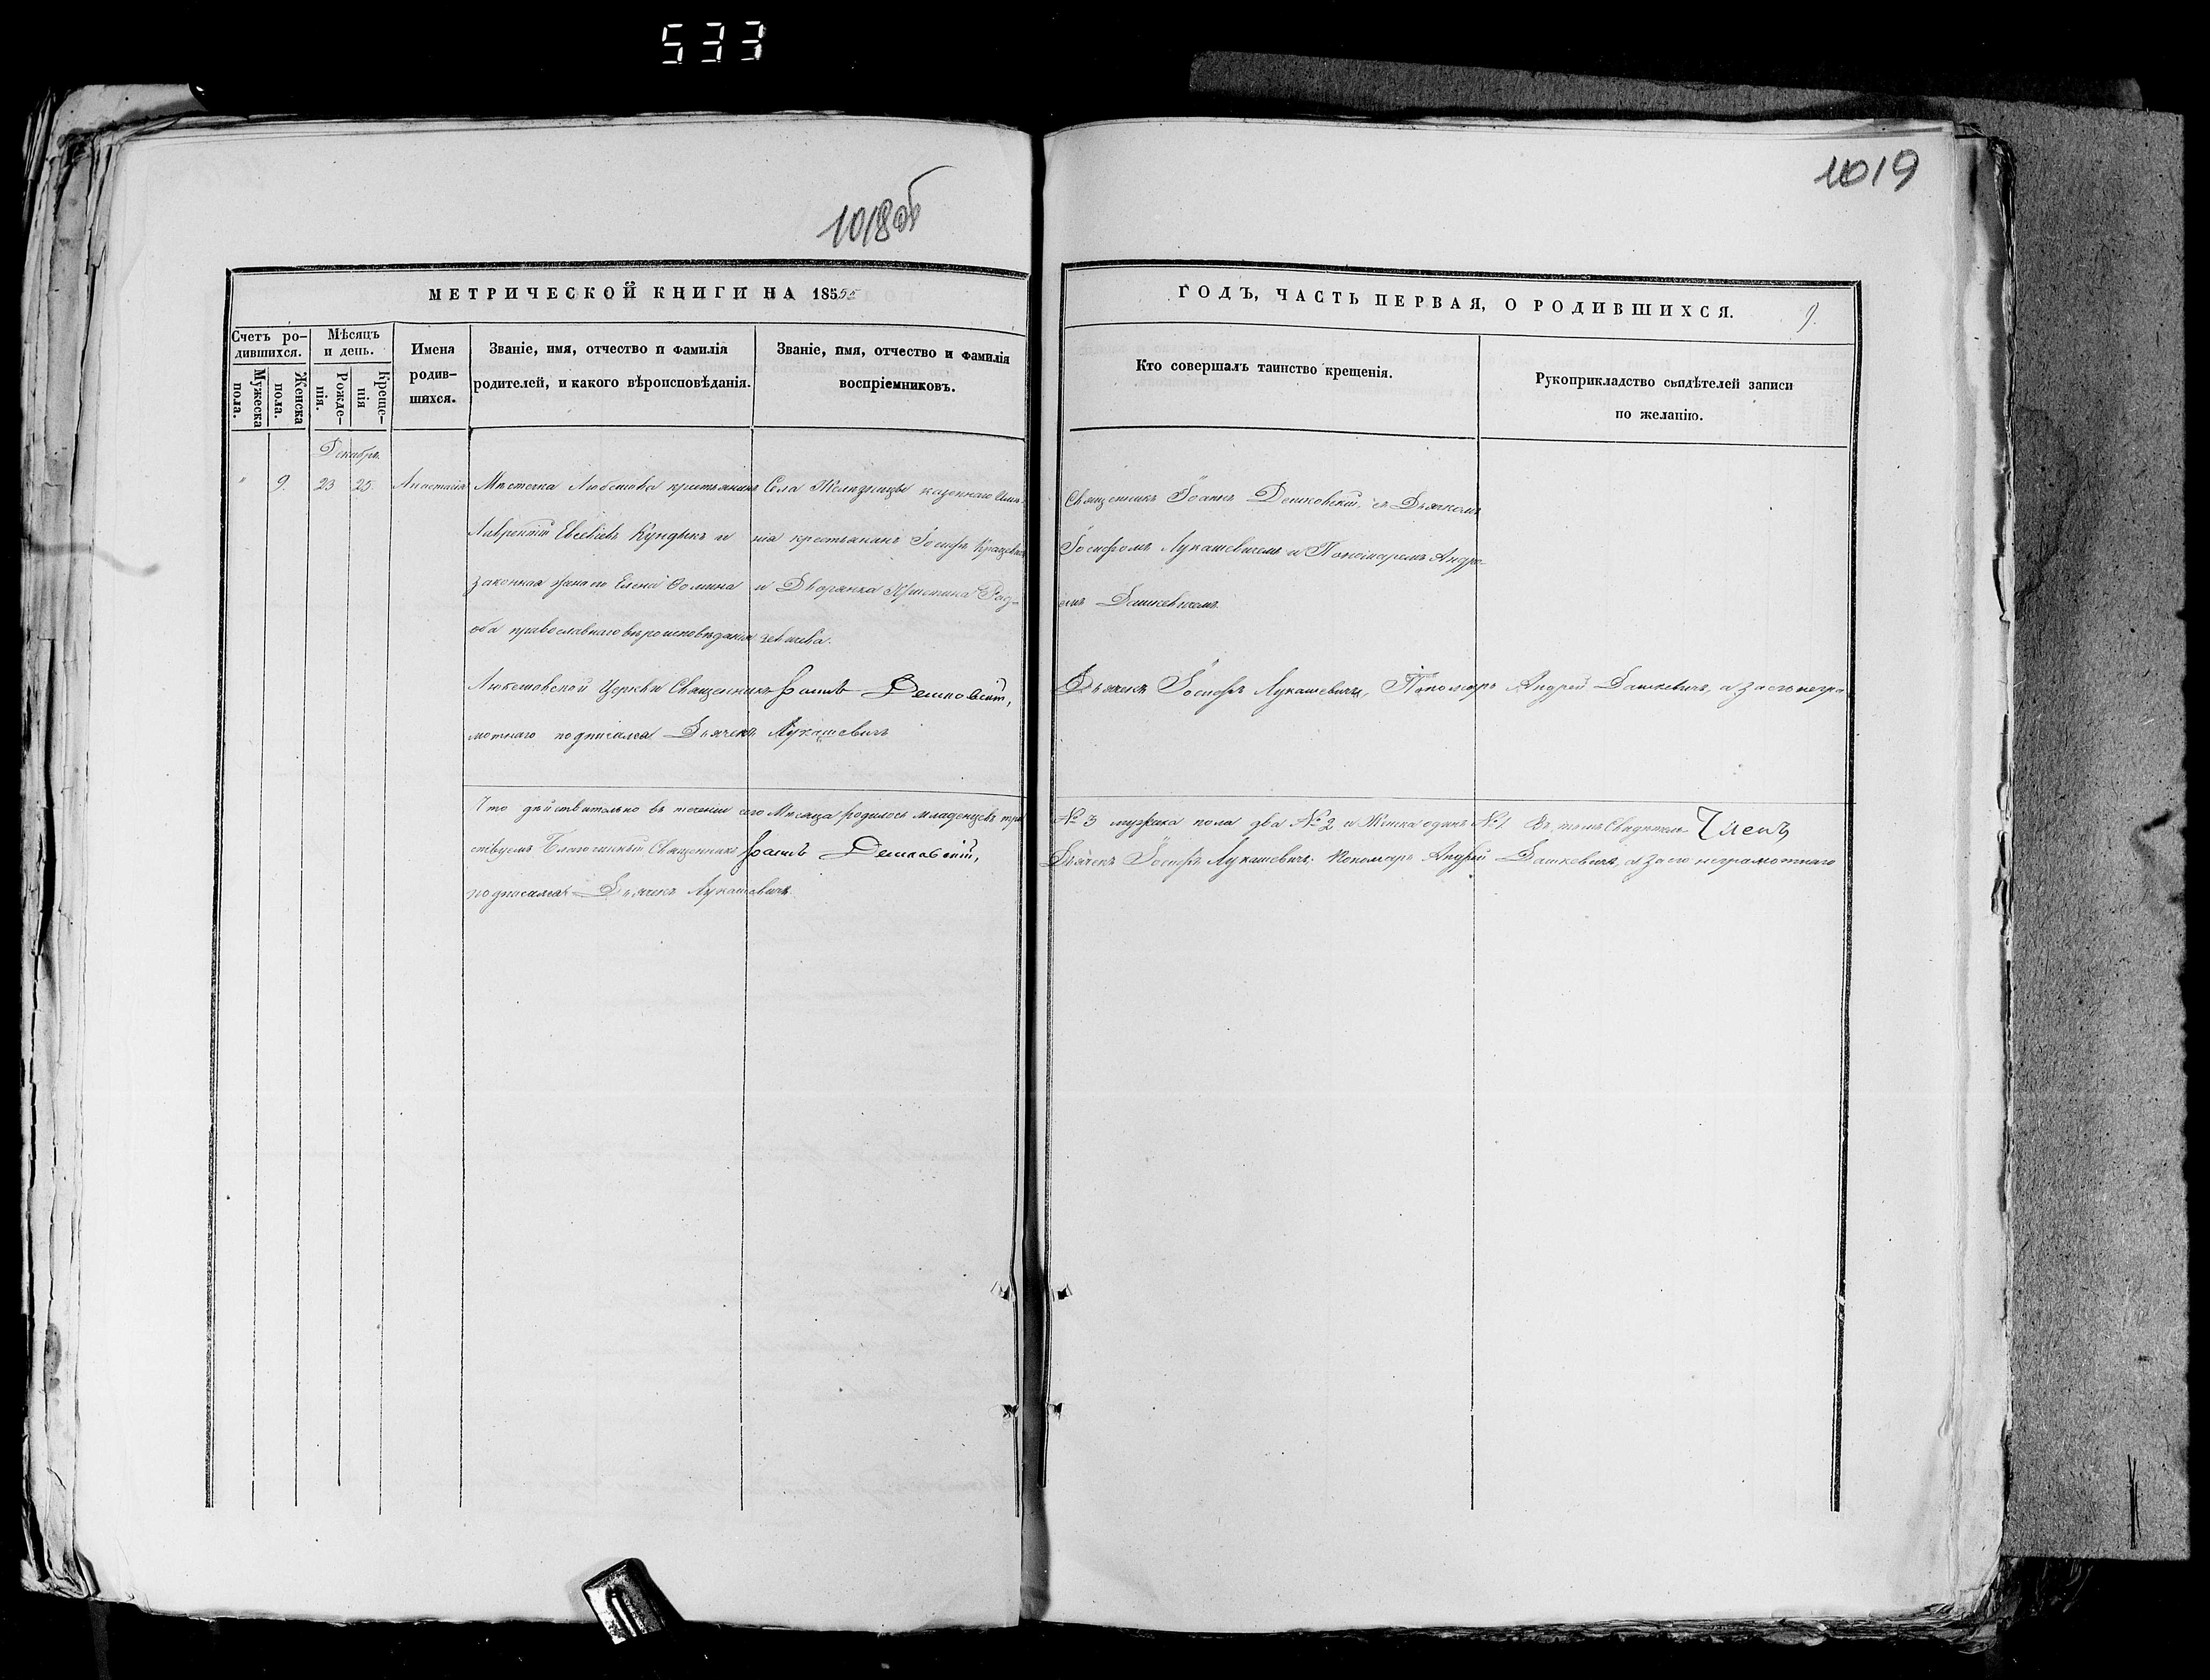 533
1018об
1019
МЕТРИЧЕСКОЙ КНИГИ НА 1855
ГОДЪ, ЧАСТЬ ПЕРВАЯ, О РОДИВШИХСЯ.
9.
Счетъ ро-
дившихся.
Мужеска
пола.
Женска
пола.
Мѣсяцъ
и день.
Рожде-
нія.
Креще-
нія
Имена
родив-
шихся.
Званіе, имя, отчество и фамилія
родителей, и какого вѣроисповѣданія.
Званіе, имя, отчество и фамилія
воспріемниковъ.
Кто совершалъ таинство крещенія.
Рукоприкладство свидѣтелей записи
по желанію.
Декабрь
" 9. 23 25. Анастасія
Мѣстечка Любешова крестьянинъ
Лаврентій Евсевіевъ Кундикъ и
законная жена его Елена Ѳомина
оба православнаго вѣроисповѣданія
Села казеннаго Имѣ-
нія крестьянинъ Іосифъ
и Дворянка Рад-
зевичева.
Священникъ Іоаннъ Дешковскій, съ Дьячкомъ
Іосифомъ Лукашевичемъ и Пономаремъ Андре-
емъ Дашкевичемъ
Любешовской Церкви Священникъ Іоаннъ Дешковскій, Дьячекъ Іосифъ Лукашевичъ, Пономарь Андрей Дашкевичъ, а за его негра-
мотнаго подписался Дьячекъ Лукашевичъ
Что дѣйствительно въ теченіи сего Мѣсяца родилось младенцевъ три № 3 мужеска пола два № 2 и Женска одинъ № 1. Въ томъ Свидѣтель-
ствуемъ Благочинный Священникъ Іоаннъ Дешковскій, Дьячекъ Іосифъ Лукашевичъ, Пономарь Андрей Дашкевичъ, а за его неграмотнаго
подписался Дьячекъ Лукашевичъ